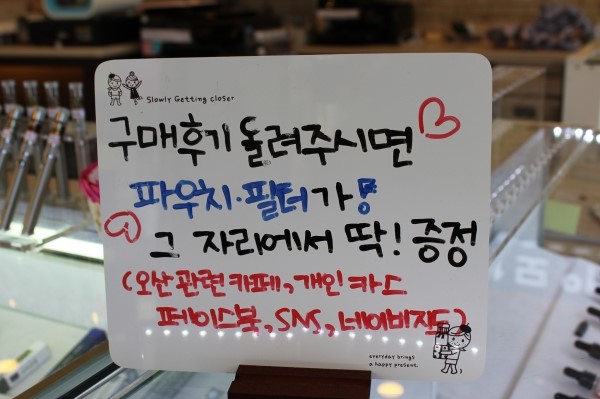 Slowly Getting closer
구매후기 올려주시면
파우치·필터가!
그 자리에서 딱! 증정
(오산관련카페, 개인카스
페이스북, SNS, 네이버지도)
everyday brings
a happy present.